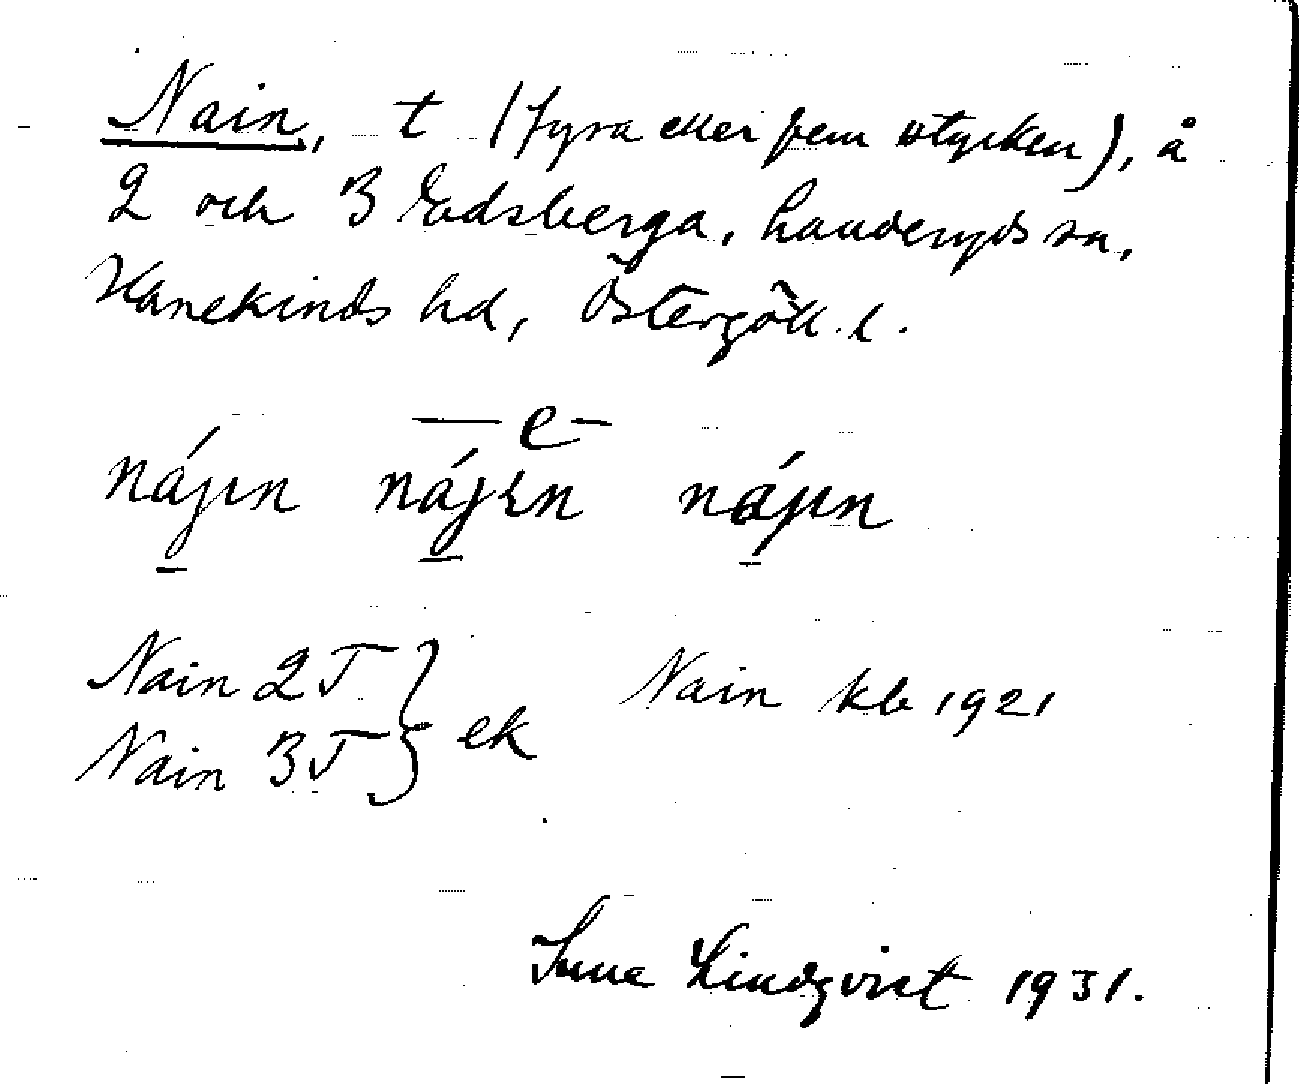 Nain, t (fyra eller fem stycken), å
2 och 3 Edsberga, Landeryds sn,
Hanekinds hd, Östergötl. l.
— e –
nájın nájın nájın
Nain 2T } ek Nain kb 1921
Nain 3T
Sune Lindqvist 1931.